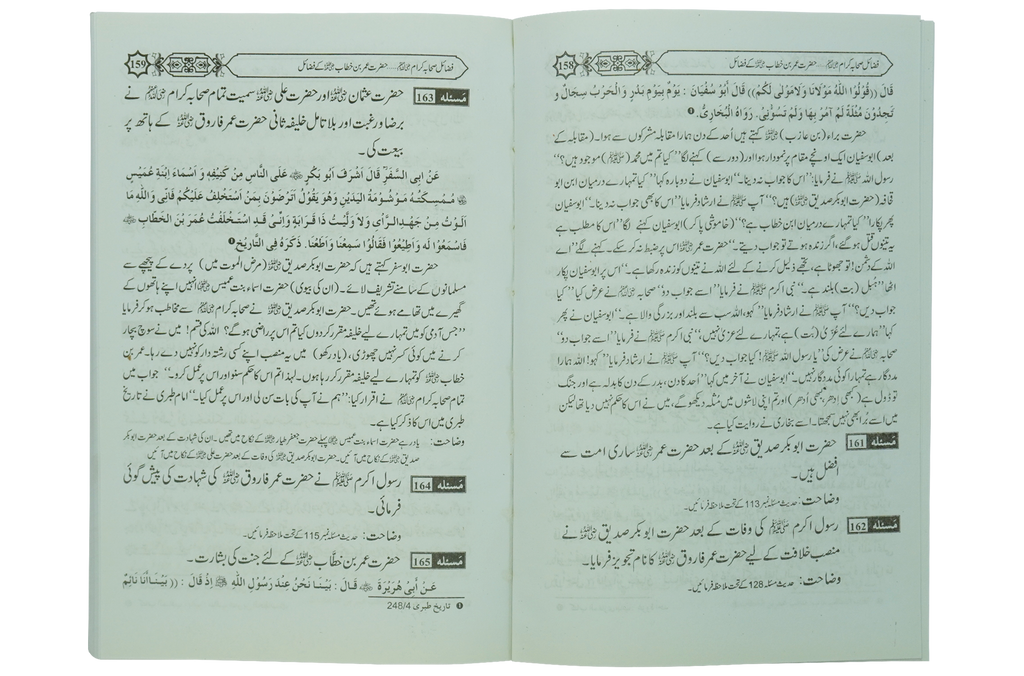 158
فضائل صحابہ کرام ﷢ ..... حضرت عمر بن خطاب ﷜ کے فضائل
قَالَ ((قُوْلُوْا اَللّٰهُ مَوْلَانَا وَلَا مَوْلٰى لَكُمْ)) قَالَ أَبُوْ سُفْيَانَ : يَوْمٌ بِيَوْمِ بَدْرٍ وَالْحَرْبُ سِجَالٌ وَ
تَجِدُوْنَ مُثْلَةً لَمْ آمُرْ بِهَا وَلَمْ تَسُؤْنِيْ. رَوَاهُ الْبُخَارِيُّ ❶
حضرت براء (بن عازب) ﷜ کہتے ہیں اُحد کے دن ہمارا مقابلہ مشرکوں سے ہوا۔ (مقابلہ کے
بعد) ابوسفیان ایک اونچے مقام پر نمودار ہوا اور (دور سے) کہنے لگا ’’کیا تم میں محمد (ﷺ) موجود ہیں؟‘‘
رسول اللہ ﷺ نے فرمایا: ’’اس کا جواب نہ دینا۔‘‘ ابوسفیان نے دوبارہ کہا ’’کیا تمہارے درمیان ابن ابو
قحافہ (حضرت ابوبکر صدیق ﷜) ہیں؟‘‘ آپ ﷺ نے ارشاد فرمایا ’’اس کا بھی جواب نہ دینا۔‘‘ ابوسفیان
پھر پکارا ’’کیا تمہارے درمیان ابن خطاب ہے؟‘‘ (خاموشی پا کر) ابوسفیان کہنے لگا ’’اس کا مطلب ہے
یہ تینوں قتل ہو گئے، اگر زندہ ہوتے تو جواب دیتے۔‘‘ حضرت عمر ﷜ اس پر ضبط نہ کر سکے۔ کہنے لگے ’’اے
اللہ کے دشمن! تو جھوٹا ہے، تجھے ذلیل کرنے کے لئے اللہ نے تینوں کو زندہ رکھا ہے۔‘‘ اس پر ابوسفیان پکار
اٹھا ’’ہُبل (بت) بلند ہے۔‘‘ نبی اکرم ﷺ نے فرمایا ’’اسے جواب دو‘‘ صحابہ ﷢ نے عرض کیا ’’کیا
جواب دیں؟‘‘ آپ ﷺ نے ارشاد فرمایا ’’کہو، اللہ سب سے بلند اور بزرگی والا ہے۔‘‘ ابوسفیان نے پھر
کہا ’’ہمارے لئے عزّیٰ (بت) ہے، تمہارے لئے عزّیٰ نہیں۔‘‘ نبی اکرم ﷺ نے فرمایا ’’اسے جواب دو‘‘
صحابہ ﷢ نے عرض کی ’’یا رسول اللہ ﷺ! کیا جواب دیں؟‘‘ آپ ﷺ نے ارشاد فرمایا ’’کہو! اللہ ہمارا
مددگار ہے تمہارا کوئی مددگار نہیں۔‘‘ ابوسفیان نے آخر میں کہا ’’اُحد کا دن، بدر کے دن کا بدلہ ہے اور جنگ
تو ڈول ہے (کبھی اِدھر، کبھی اُدھر) اور تم اپنی لاشوں میں مُثلہ دیکھو گے، میں نے اس کا حکم نہیں دیا تھا لیکن
میں اسے بُرا بھی نہیں سمجھتا۔‘‘ اسے بخاری نے روایت کیا ہے۔
مسئلہ 161 حضرت ابوبکر صدیق ﷜ کے بعد حضرت عمر ﷜ ساری امت سے
افضل ہیں۔
وضاحت: حدیث مسئلہ نمبر 113 کے تحت ملاحظہ فرمائیں۔
مسئلہ 162 رسول اکرم ﷺ کی وفات کے بعد حضرت ابوبکر صدیق ﷜ نے
منصب خلافت کے لیے حضرت عمر فاروق ﷜ کا نام تجویز فرمایا۔
وضاحت: حدیث مسئلہ 128 کے تحت ملاحظہ فرمائیں۔
159
فضائل صحابہ کرام ﷢ ..... حضرت عمر بن خطاب ﷜ کے فضائل
مسئلہ 163 حضرت عثمان ﷜ اور حضرت علی ﷜ سمیت تمام صحابہ کرام ﷢ نے
برضا و رغبت اور بلا تامل خلیفہ ثانی حضرت عمر فاروق ﷜ کے ہاتھ پر
بیعت کی۔
عَنْ اَبِى السَّفَرِ قَالَ اَشْرَفَ اَبُوْ بَكْرٍ ﷜ عَلَى النَّاسِ مِنْ كَنِيْفِهٖ وَ اَسْمَاءُ ابْنَةُ عُمَيْسٍ
﷞ مُمْسِكَتُهٗ مَوْشُوْمَةُ الْيَدَيْنِ وَهُوَ يَقُوْلُ اَتَرْضَوْنَ بِمَنْ اَسْتَخْلِفُ عَلَيْكُمْ فَاِنِّىْ وَاللّٰهِ مَا
اَلَوْتُ مِنْ جَهْدِ الرَّأْىِ وَلَا وَلَّيْتُ ذَا قَرَابَةٍ وَاِنِّىْ قَدِ اسْتَخْلَفْتُ عُمَرَ بْنَ الْخَطَّابِ ﷜
فَاسْمَعُوْا لَهٗ وَاَطِيْعُوْا فَقَالُوْا سَمِعْنَا وَاَطَعْنَا. ذَكَرَهٗ فِى التَّارِيْخِ ❶
حضرت ابوسفر کہتے ہیں کہ حضرت ابوبکر صدیق ﷜ (مرض الموت میں) پردے کے پیچھے سے
مسلمانوں کے سامنے تشریف لائے۔ (ان کی بیوی) حضرت اسماء بنت عمیس ﷞ انہیں اپنے ہاتھوں کے
گھیرے میں تھامے ہوئے تھیں۔ حضرت ابوبکر صدیق ﷜ نے صحابہ کرام ﷢ سے مخاطب ہو کر فرمایا
’’جس آدمی کو میں تمہارے لیے خلیفہ مقرر کر دوں کیا تم اس پر راضی ہو گے؟ اللہ کی قسم! میں نے سوچ بچار
کرنے میں کوئی کسر نہیں چھوڑی، (یاد رکھو) میں یہ منصب اپنے کسی رشتہ دار کو نہیں دے رہا۔ عمر بن
خطاب ﷜ کو تمہارے لیے خلیفہ مقرر کر رہا ہوں۔ لہٰذا تم اس کا حکم سنو اور اس پر عمل کرو۔‘‘ جواب میں
تمام صحابہ کرام ﷢ نے اقرار کیا: ’’ہم نے آپ کی بات سن لی اور اس پر عمل کیا۔‘‘ امام طبری نے تاریخ
طبری میں اس کا ذکر کیا ہے۔
وضاحت: یاد رہے حضرت اسماء بنت عمیس ﷞ پہلے حضرت جعفر طیار ﷜ کے نکاح میں تھیں۔ ان کی شہادت کے بعد حضرت ابوبکر
صدیق ﷜ کے نکاح میں آئیں۔ حضرت ابوبکر صدیق ﷜ کی وفات کے بعد حضرت علی ﷜ کے نکاح میں آئیں
مسئلہ 164 رسول اکرم ﷺ نے حضرت عمر فاروق ﷜ کی شہادت کی پیش گوئی
فرمائی۔
وضاحت: حدیث مسئلہ نمبر 115 کے تحت ملاحظہ فرمائیں۔
مسئلہ 165 حضرت عمر بن خطاب ﷜ کے لئے جنت کی بشارت۔
عَنْ أَبِيْ هُرَيْرَةَ ﷜ قَالَ : بَيْنَا نَحْنُ عِنْدَ رَسُوْلِ اللّٰهِ ﷺ إِذْ قَالَ : (( بَيْنَا أَنَا نَائِمٌ
❶ تاریخ طبری 248/4